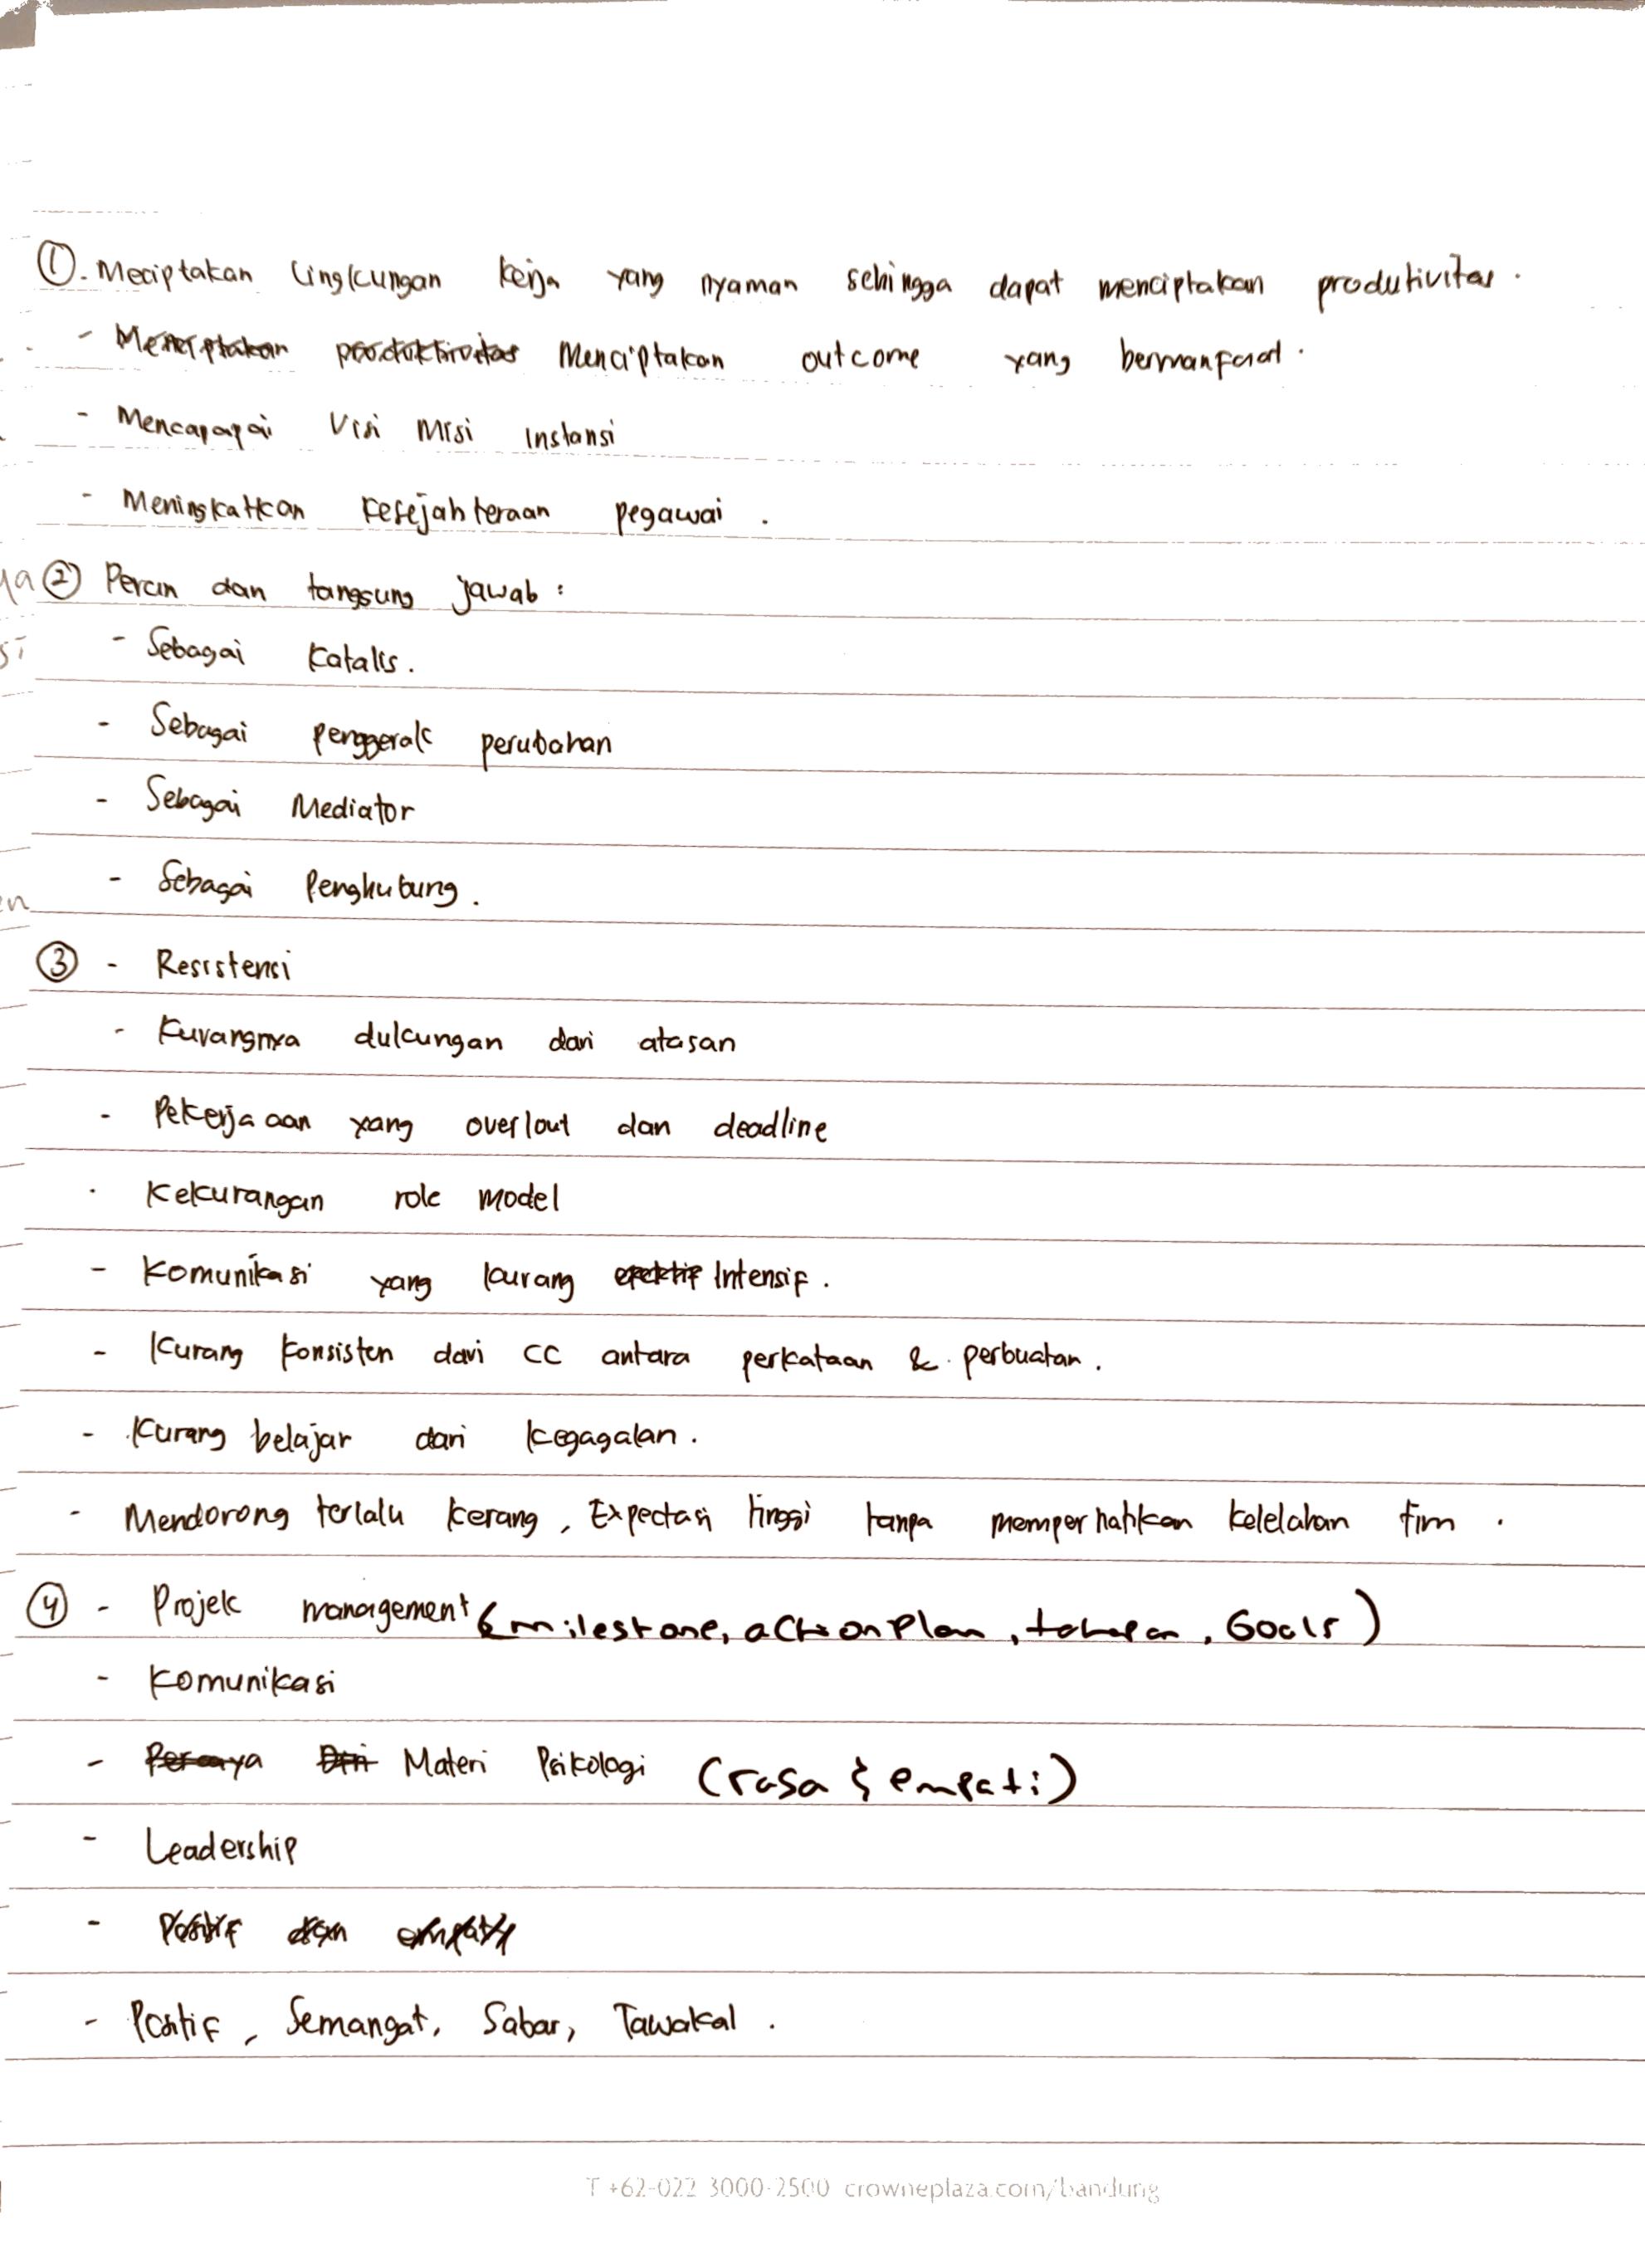 ① - Meciptakan lingkungan kerja yang nyaman sehingga dapat menciptakan produtivitas.
- Menciptakan produktivitas Menciptakan outcome yang bermanfaat.
- Mencapapai Visi Misi Instansi
- Meningkatkan kesejahteraan pegawai.
② Peran dan tanggung jawab :
- Sebagai Katalis.
- Sebagai penggerak perubahan
- Sebagai Mediator
- Sebagai Penghubung.
③ - Resistensi
- Kurangnya dukungan dari atasan
- Pekerjaaan yang overlout dan deadline
- Kekurangan role model
- Komunikasi yang kurang efektif Intensif.
- Kurang konsisten dari CC antara perkataan & perbuatan.
- Kurang belajar dari kegagalan.
- Mendorong terlalu kerang, Expectasi tinggi tanpa memperhatikan kelelahan tim.
④ - Projek management (milestone, action plan, tahapan, Goals)
- Komunikasi
- Materi Psikologi (rasa & empati)
- Leadership
- Positif dan empati
- Positif, Semangat, Sabar, Tawakal.
T +62-022 3000-2500 crowneplaza.com/bandung